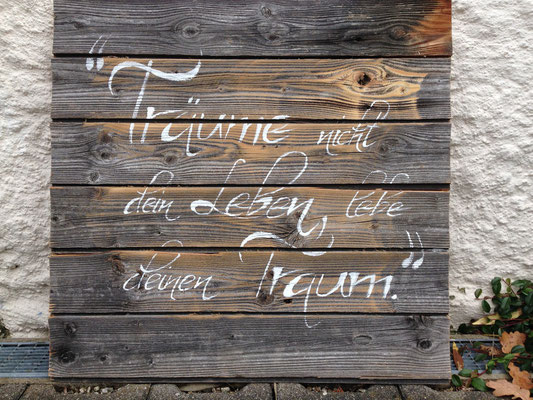 "Träume nicht
dein Leben, lebe
deinen Traum."